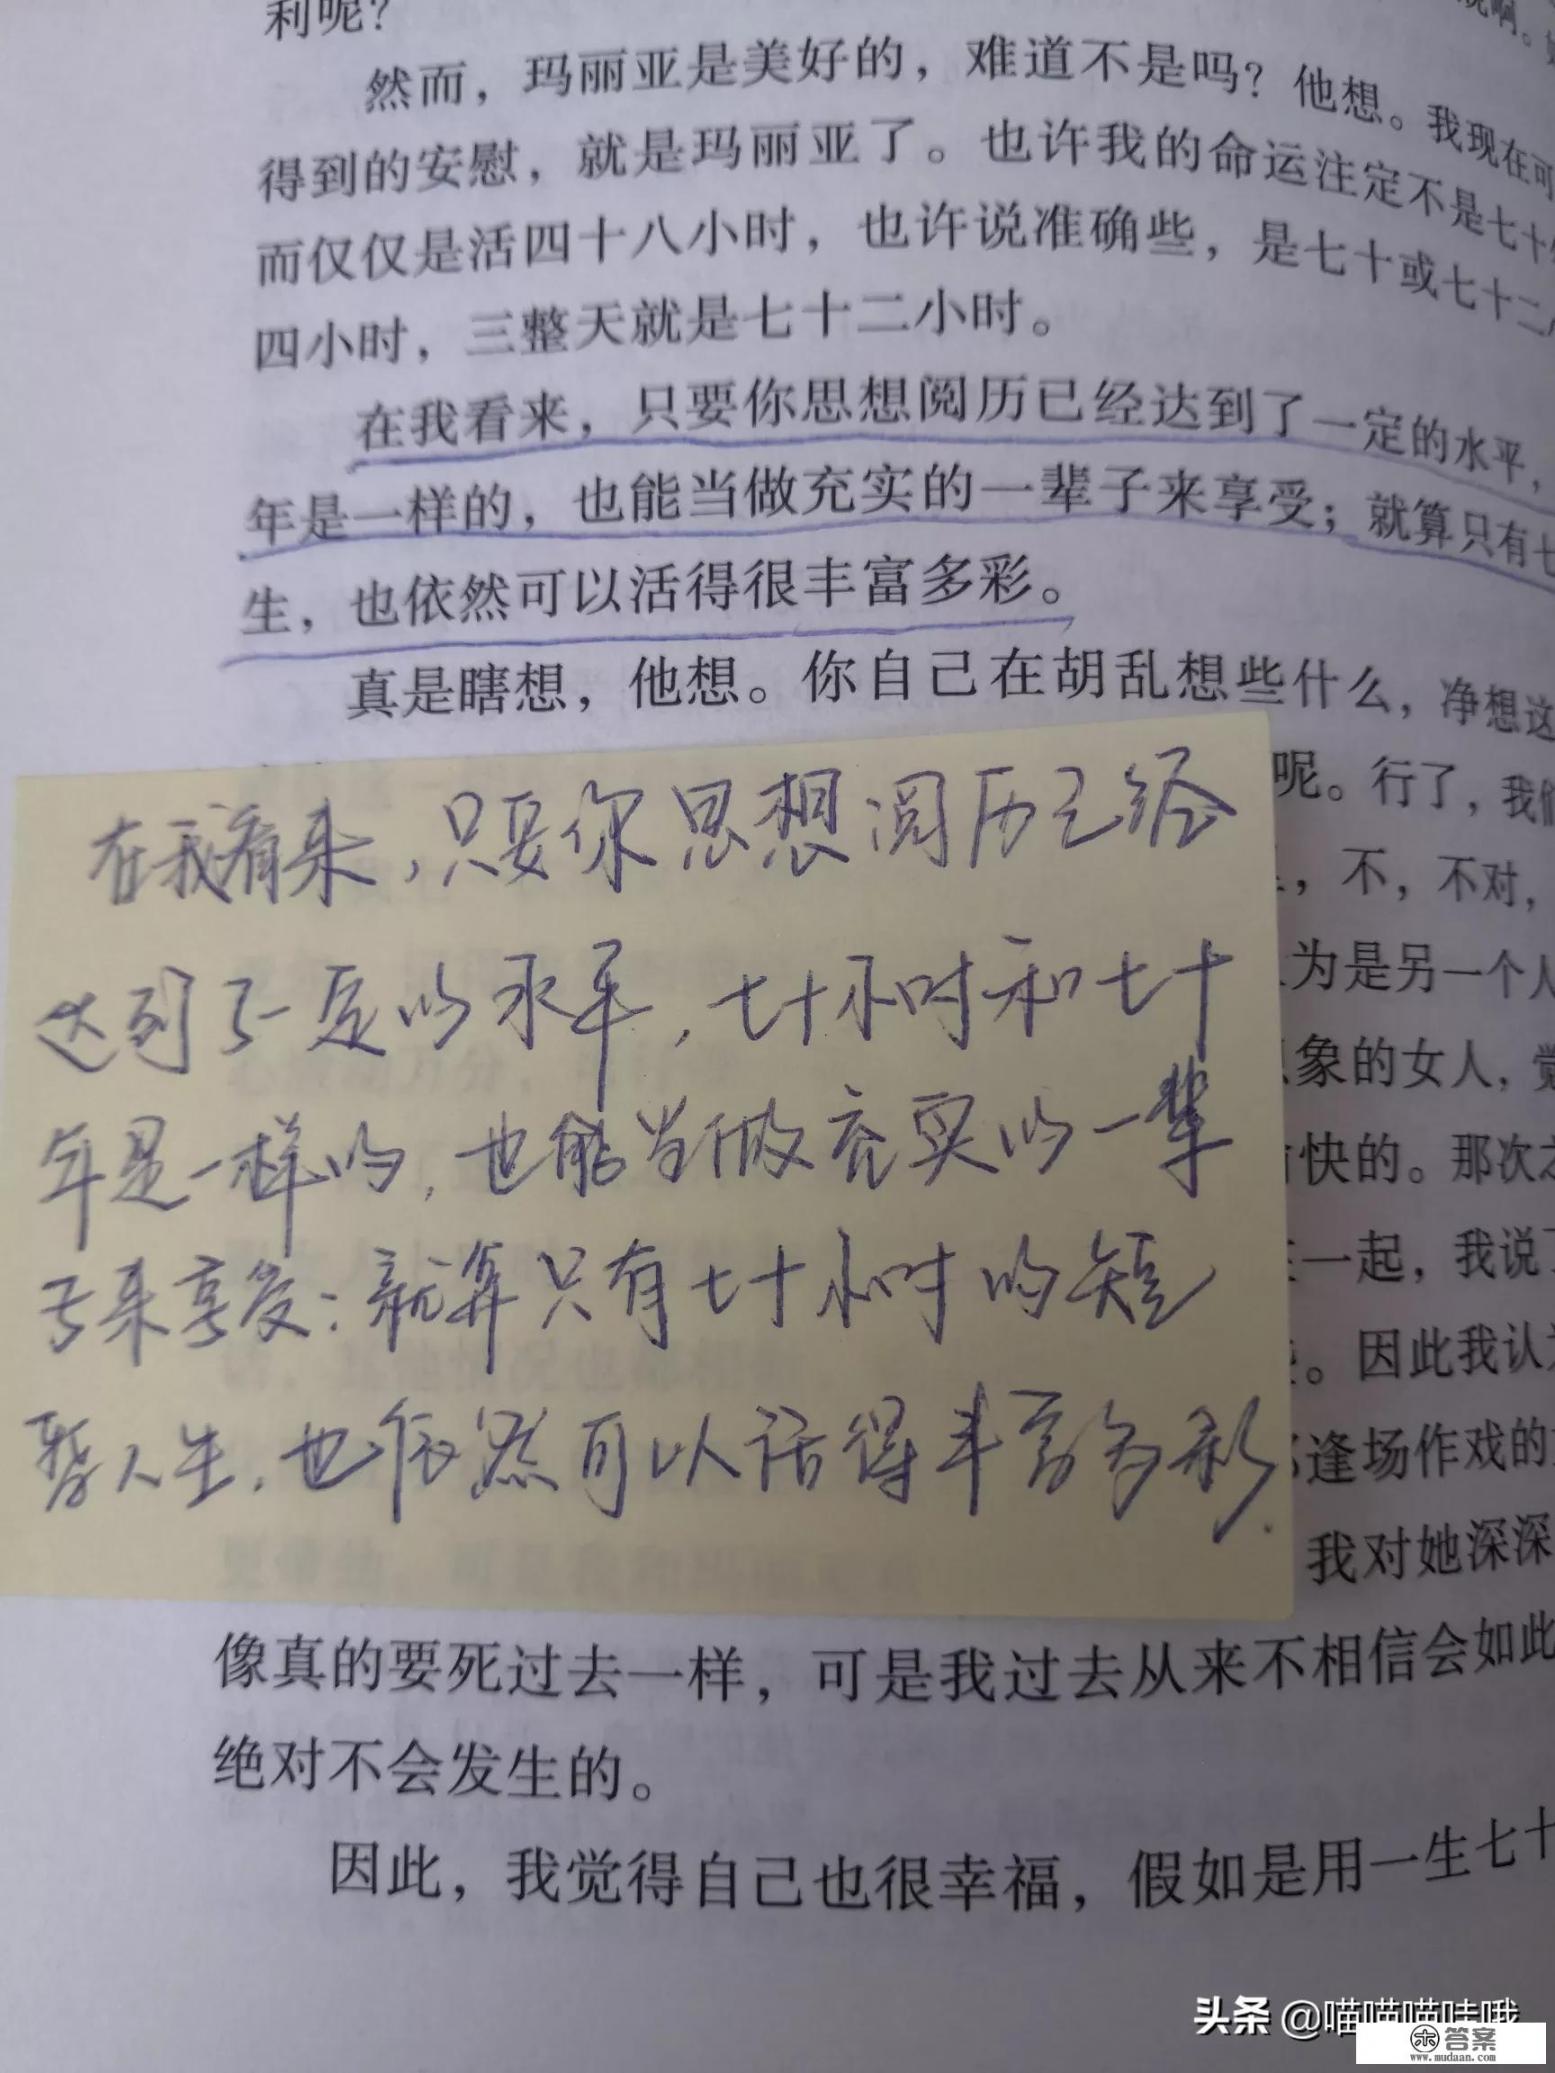 利呢？
然而，玛丽亚是美好的，难道不是吗？他想。我现在可
得到的安慰，就是玛丽亚了。也许我的命运注定不是七十
而仅仅是活四十八小时，也许说准确些，是七十或七十二
四小时，三整天就是七十二小时。
在我看来，只要你思想阅历已经达到了一定的水平，
年是一样的，也能当做充实的一辈子来享受；就算只有七
生，也依然可以活得很丰富多彩。
真是瞎想，他想。你自己在胡乱想些什么，净想这
呢。行了，我们
，不，不对，
为是另一个人
象的女人，觉
快的。那次
一起，我说
。因此我认为
逢场作戏的
我对她深深
在我看来，只要你思想阅历已经
达到了一定的水平，七十小时和七十
年是一样的，也能当做充实的一辈
子来享受：就算只有七十小时的短
暂人生，也依然可以活得丰富多彩.
像真的要死过去一样，可是我过去从来不相信会如此
绝对不会发生的。
因此，我觉得自己也很幸福，假如是用一生七十
头条 @喵喵喵哇哦
答案
www.mudaan.com